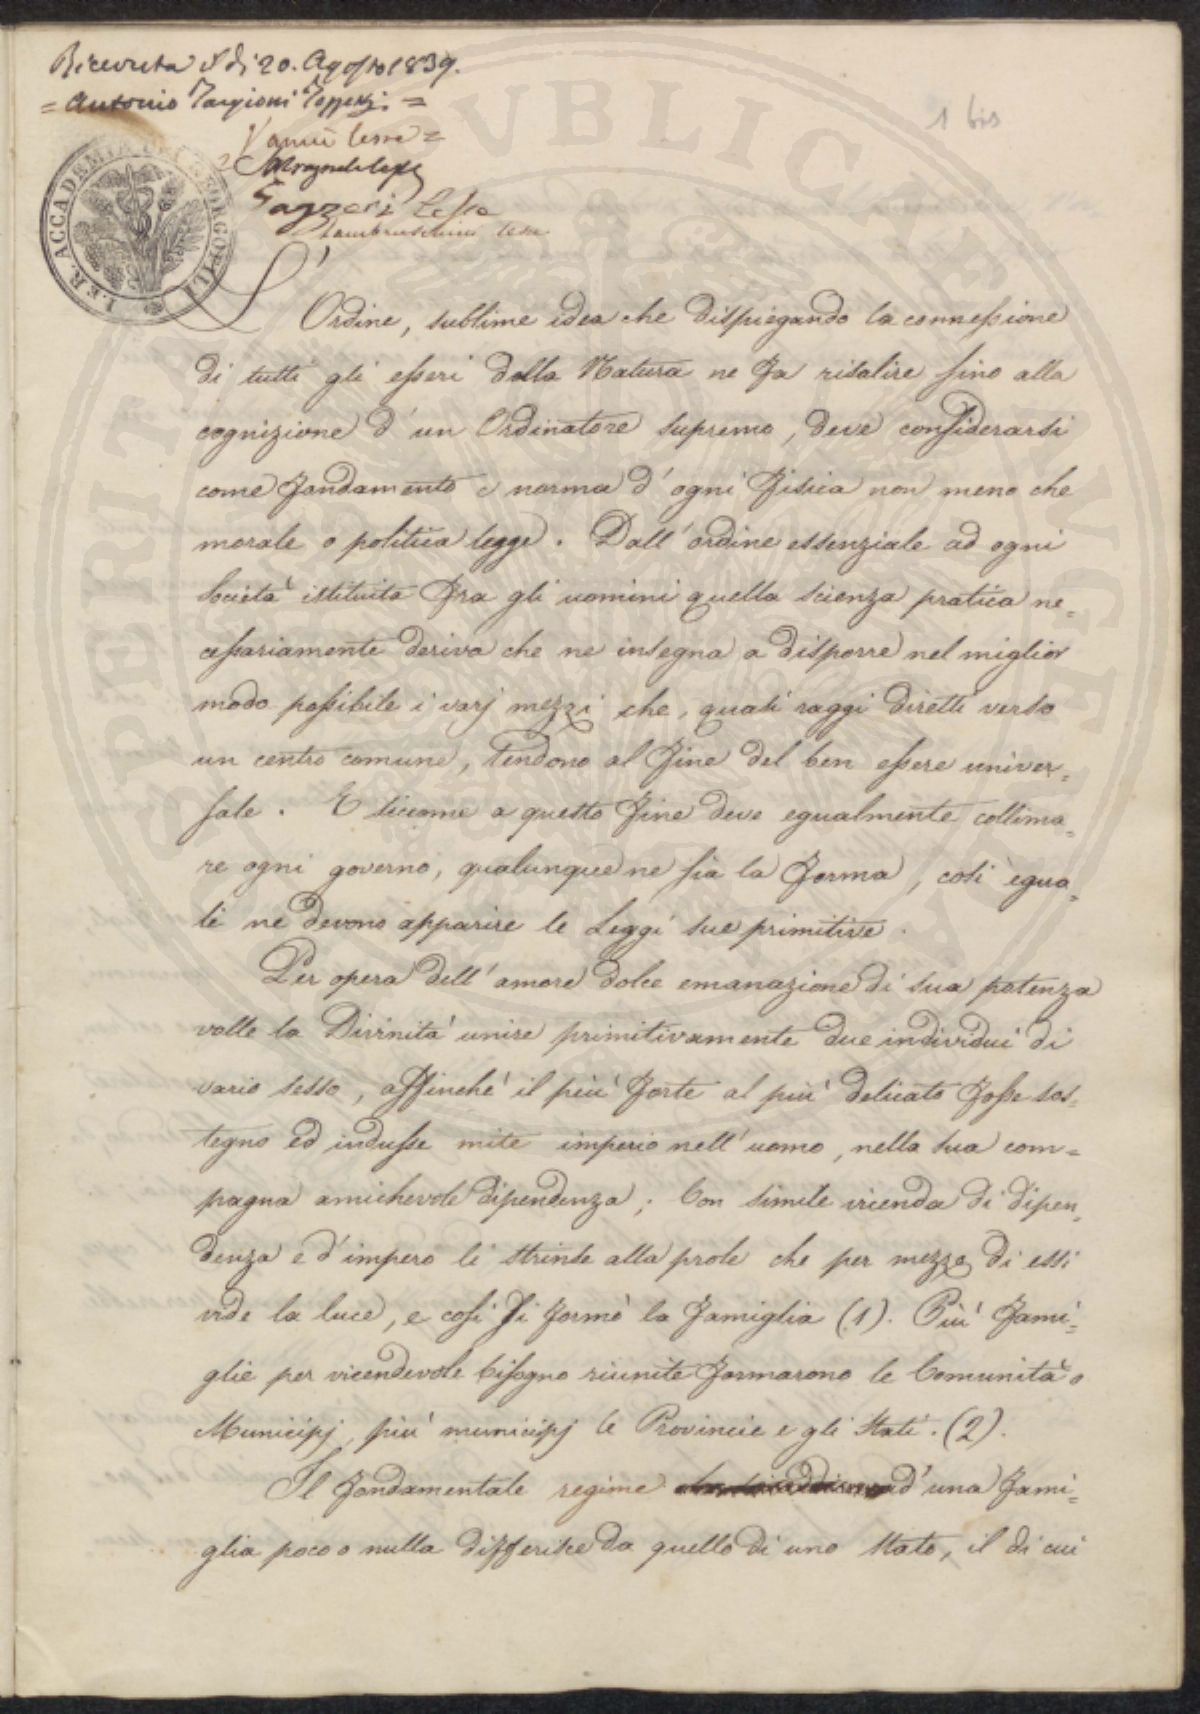 Ricevuta il dì 20. Agosto 1839.
= Antonio Targioni Tozzetti =
Vanni lesse =
Gazzeri lesse
Lambruschini lesse
1 bis
I. E R. ACCADEMIA DEI GEORGOFILI
L'Ordine, sublime idea che dispiegando la connessione
di tutti gli esseri della Natura ne fa risalire fino alla
cognizione d'un Ordinatore supremo, deve considerarsi
come fondamento e norma d'ogni fisica non meno che
morale o politica legge. Dall'ordine essenziale ad ogni
Società istituita fra gli uomini quella scienza pratica ne=
cessariamente deriva che ne insegna a disporre nel miglior
modo possibile i varj mezzi che, quali raggi diretti verso
un centro comune, tendono al fine del ben essere univer=
sale. E siccome a questo fine deve egualmente collima=
re ogni governo, qualunque ne sia la forma, così egua=
li ne devono apparire le Leggi sue primitive.
Per opera dell'amore dolce emanazione di sua potenza
volle la Divinità unire primitivamente due individui di
vario sesso, affinchè il più forte al più delicato fosse sos=
tegno ed indusse mite imperio nell'uomo, nella sua com=
pagna amichevole dipendenza; Con simile vicenda di dipen=
denza e d'impero li strinse alla prole che per mezzo di essi
vide la luce, e così si formò la famiglia (1). Più fami=
glie per vicendevole bisogno riunite formarono le Comunità o
Municipj, più municipj le Provincie e gli Stati. (2).
Il fondamentale regime d'una fami=
glia poco o nulla differisce da quello di uno Stato, il di cui